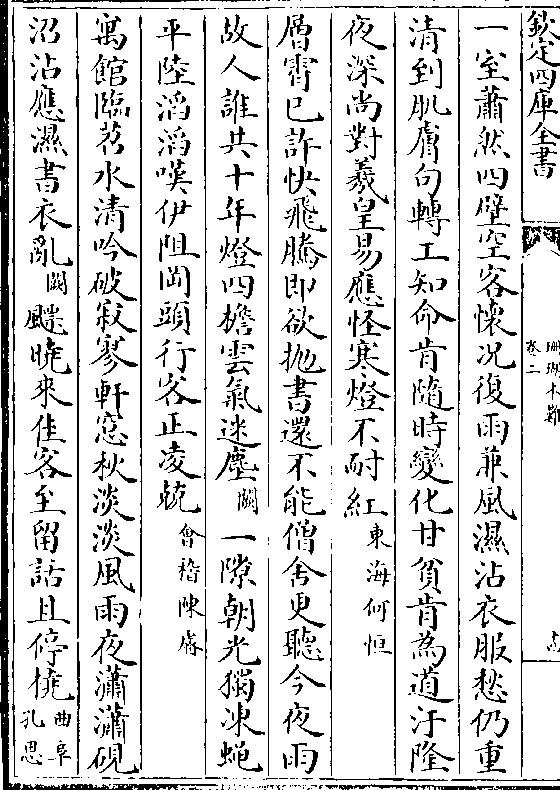 欽定四庫全書
珊瑚木難
卷二
一室蕭然四壁空客懷况復雨兼風濕沾衣服愁仍重
清到肌膚句轉工知命肯隨時變化甘貧肯為道汙隆
夜深尚對羲皇易應怪寒燈不耐紅東海何恒
層霄已許快飛騰即欲拋書還不能僧舍更聽今夜雨
故人誰共十年燈四檐雲氣迷塵闕一隙朝光獨凍蠅
平陸滔滔嘆伊阻岡頭行客正凌兢會稽陳睿
寓館臨苕水清吟破寂寥軒窓秋淡淡風雨夜瀟瀟硯
沼沾應濕書衣亂闕颷曉來佳客至留話且停橈曲阜孔思